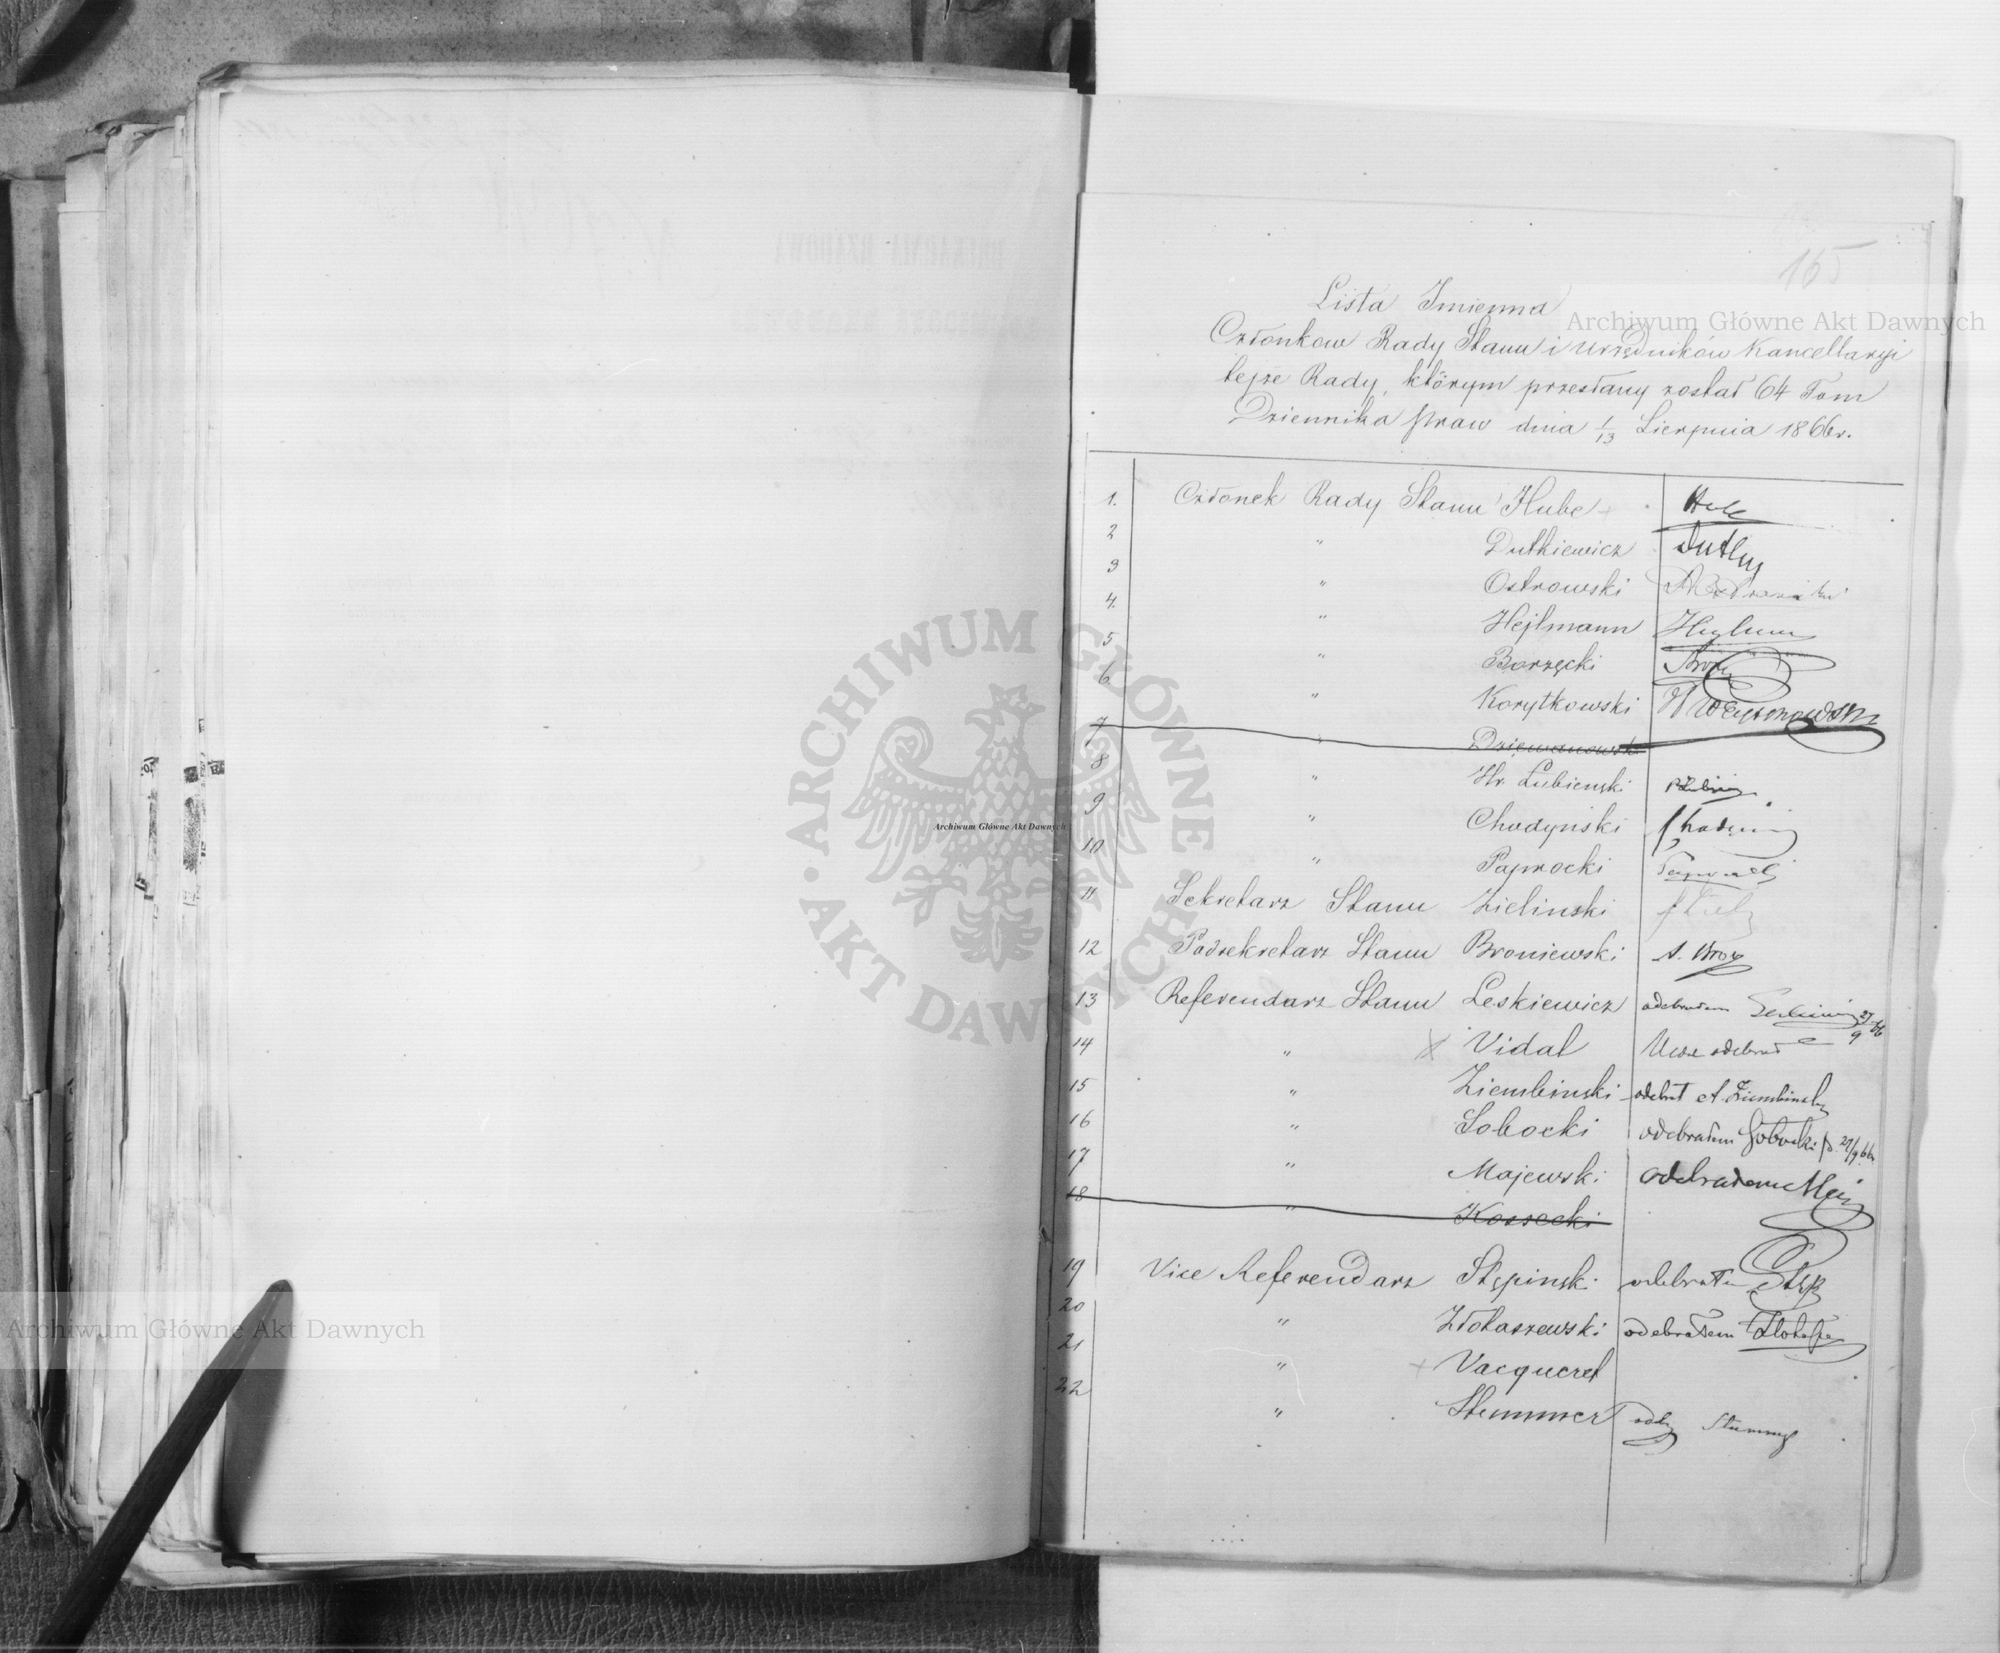 165
Lista Imienna
Członkow Rady Stanu i Urzędników Kancellaryi
tejże Rady, którym przesłany został 64 Tom
Dziennika praw dnia 1/13 Sierpnia 1866 r.
1. Członek Rady Stanu Hube Hube
2 " Dutkiewicz Dutk
3 " Ostrowski
4. " Hejlmann
5 " Borzęcki
6 " Korytkowski
7 " Dziewanowski
8 " Hr. Łubieński
9 " Chodyński
10 " Paprocki Paprocki
11 Sekretarz Stanu Zieliński
12 Podsekretarz Stanu Broniewski A. Bron
13 Referendarz Stanu Leskiewicz odebrałem 27/9 66
14 " Vidal odebrał
15 " Ziembinski odebrał A. Ziembinski
16 " Sobocki odebrałem Sobocki d. 27/9 66
17 " Majewski odebrałem Maj
18 " Kossecki
19 Vice Referendarz Stępinski odebrałem Stęp
20 " Złotaszewski odebrałem
21 " Vacqueret
22 " Stemmer
Archiwum Główne Akt Dawnych
Archiwum Główne Akt Dawnych
Archiwum Główne Akt Dawnych
ARCHIWUM GŁÓWNE AKT DAWNYCH
DRUKARNIA RZĄDOWA